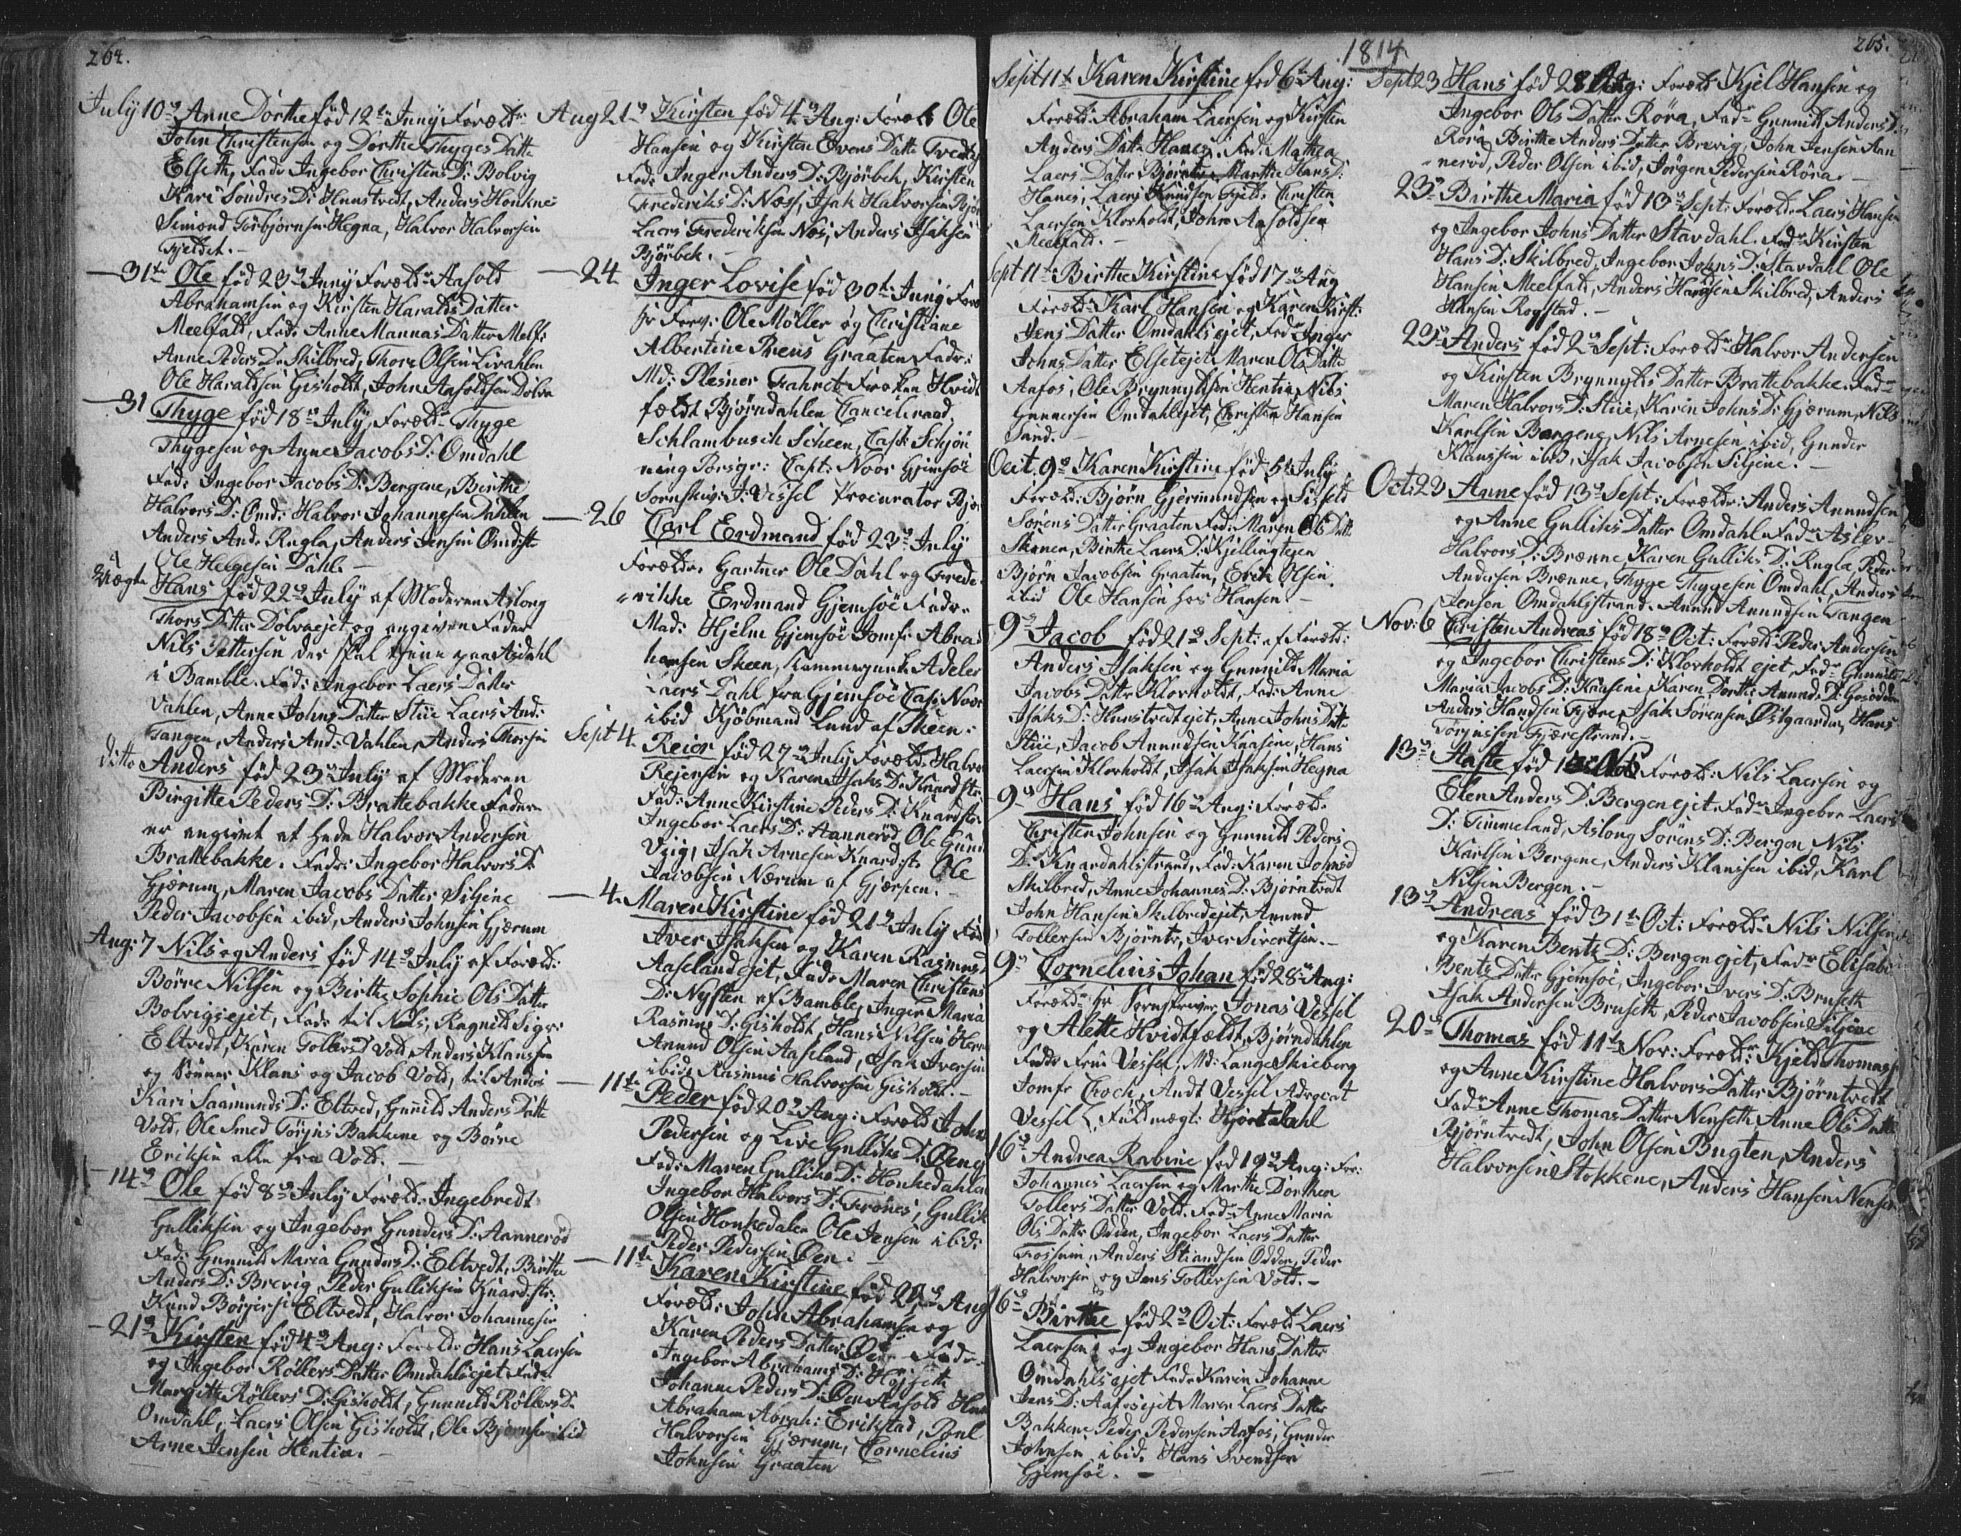 264.
July 10de Anne Dorthe föd 12te Juny Foræld:
John Christensen og Dorthe Thyges Datt:
Elseth, Fad: Ingebor Christens D: Bolvig
Kari Sondres D: Hunstvedt, Anders Honkne
Simond Torbjørnsen Hegna, Halvor Halvorsen
Fjeldet. -
31te Ole föd 23de Juny Foræld: Aasold
Abrahamsen og Kirsten Haralds Datter
Meelfald, Fad: Anne Mannas Datter Melf:
Anne Peders D: Skilbred, Thore Olsen Livahlen
Ole Haraldsen Gisholdt, John Aasoldsen Dolva
31 Thyge föd 18de July, Foræld: Thyge
Thygesen og Anne Jacobs D: Omdahl
Fad: Ingebor Jacobs D: Bergene, Birthe
Halvors D: Omd: Halvor Johannesen Dahlen
Anders And: Rugla, Anders Jensen Omdstr:
Ole Helgesen Dahl. -
Hans föd 22de July af Moderen Aslong
Thors Datter Dolvaejet og angiven Fader
Nils Pettersen der skal tjene paa Asdahl
i Bamble. Fad: Ingebor Laers Datter
Vahlen, Anne Johns Datter Stüe Laers And:
Tangen, Anders And: Vahlen, Anders Thorsen
ditto Anders föd 23de July af Moderen
Birgitte Peders D: Brattebakke Faderen
er angivet at hede Halvor Andersen
Brattebakke. Fad: Ingebor Halvors D:
Gjærum, Maren Jacobs Datter Siljene
Peder Jacobsen ibid, Anders Johnsen Gjærum
Aug: 7 Nils og Anders föd 14de July af Foræld:
Börre Nilsen og Birthe Sophie Ols Datter
Bolvigsejet, Fad: til Nils, Ragnild Sigv:
Eltvedt, Karen Tollevs D Vold, Anders Klausen
og Sönner Klaus og Jacob Vold, til Anders
Kari Saamunds D: Eltved, Gunild Anders Datt
Vold, Ole Smed Törjus Bakkene og Börre
Eriksen alle fra Vold. -
14de Ole föd 8de July Foræld: Ingebredt
Gulliksen og Ingebor Gunders D: Aannerød
Fad: Gunnild Maria Gunders D: Eltvedt, Birthe
Anders D: Brevig, Peder Gulliksen Knard:str:
Knud Börgersen Eltvedt, Halvor Johannesen
21de Kirsten föd 4de Aug: Foræld: Hans Laersen
og Ingebor Röllers Datter Omdahlsejet Fad:
Margitte Röllers D: Gisholdt, Gunnild Röllers D:
Omdahl, Laers Olsen Gisholdt, Ole Bjørnsen ibid
Arne Jensen Hentia. -
Aug 21de Kirsten föd 4de Aug: Foræld Ole
Hansen og Kirsten Evens Datt:
Fad: Inger Anders D: Bjørbek, Kirsten
Frederiks D: Næs, Isak Halvorsen Bjør
Laers Frederiksen Næs, Anders Isaksen
Bjørbek. -
24 Inger Lovise föd 30te Juny Foræ
hr Forv: Ole Møller og Christiane
Albertine Preus Graaten Fadr:
Md: Plesner Fahret Frøken Hvidt
fældt Bjørndahlen Cancelieraad,
Schlambusch Scheen, Capt: Schjön
ning Porsgr: Capt: Noor Gjemsöe
Sornskriv: J: Vessel Procurator Bjø
26 Carl Erdmand föd 23de July
Foræld: Gartner Ole Dahl og Frede
rikke Erdmand Gjemsöe Fadr:
Mad: Hjelm Gjemsöe Jomf: Abra
hamsen Skeen, Kammerjunk: Adeler
Laers Dahl fra Gjemsöe Cap: Noor
ibid Kjöbmand Lund af Skeen:
Sept 4. Reior föd 27de July Foræld: Halvor
Rejersen og Karen Isaks D: Knard:str:
Fad: Anne Kirstine Peders D: Knardstr:
Ingebor Laers D: Aannerød Ole Gun
Vüg, Isak Arnesen Knard:str: Ole
Jacobsen Nærum af Gjærpen. -
4. Maren Kirstine föd 21de July Foræ
Iver Isaksen og Karen Rasmus D
Aaseland ejet, Fad: Maren Christens
D: Nysten af Bamble, Inger Maria
Rasmus D: Gisholdt, Hans Nilsen Herre
Annund Olsen Aaseland, Isak Iversen
ibid, Rasmus Halvorsen Gisholdt. -
11te Peder föd 20de Aug: Foræld John
Pedersen og Live Gulliks D: Øen ej
Fad: Maren Gulliks D: Honkedahlen
Ingebor Halvors D: Frönes, Gullik
Olsen Honkedalen Ole Jensen ibid:
Peder Pedersen Øen.
11te Karen Kirstine föd 22de Aug
Foræld: John Abrahamsen og
Karen Peders Datter Øen Fadr:
Ingebor Abrahams D: Höjseth
Johanne Peders D: Øen Aasold Han
Abraham Abrah: Erikstad, Povl
Halvorsen Gjærum, Cornelius
Johnsen Graaten
1814
265.
Sept 11te Karen Kirstine föd 6te Aug:
Foræld: Abraham Laersen og Kirsten
Anders Datt: Hanes, Fad: Mathea
Laers Datter Bjørntv: Marthe Hans D:
Hanes, Laers Knudsen Fjeld: Christen
Laersen Klovholdt, John Aasoldsen
Meelfald. -
Sept 11te Birthe Kirstine föd 17de Aug
Foræld: Karl Hansen og Karen Kirst:
Jens Datter Omdahlsejet, Fad: Inger
Johns Datter Elsetejet Maren Ols Datte
Aafos, Ole Brynnyldsen Hentia, Nils
Gunnersen Omdahlejet, Christen Hansen
Sund. -
Oct. 9de Karen Kirstine föd 5te July
Foræld: Bjørn Gjermundsen og Sissild
Sörens Datter Graaten Fad: Maren Ols Datt
Skenen, Birthe Laers D: Kjellingtejen
Bjørn Jacobsen Graaten, Erik Olsen
ibid Ole Hansen hos Hansen. -
9de Jacob föd 21de Sept: af Foræld:
Anders Isaksen og Gunnild Maria
Jacobs Datter Klovholdt, Fad: Anne
Isaks D: Hunstvedt ejet, Anne Johns Datt
Stüe, Jacob Annundsen Knasene, Hans
Laersen Klovholdt, Isak Isaksen Hegna
9de Hans föd 16de Aug: Foræld:
Christen Johnsen og Gunnild Peders
D: Knardahlstrand, Fad: Karen Johns D
Skilbred, Anne Johannes D: Bjørntvedt
John Hansen Skilbredejet, Annund
Tollersen Bjørntv, Iver Sivertsen. -
9de Cornelius Johan föd 28de Aug:
Foræld: hr Sornskriver Jonas Vessel
og Alette Hvidtfældt, Bjørndahlen
Fadr: Frue Vessel, Md: Lange Skieberg
Jomfr Croch, Andt Vessel Advocat
Vessel, Fuldmægt: Hjortdahl
16de Andrea Rabine föd 19de Aug: For:
Johannes Laersen og Marthe Dorthea
Tollers Datter Vold. Fad: Anne Maria
Ols Datter Odden, Ingebor Laers Datter
Fossum, Anders Stiandsen Odden, Peder
Halvorsen og Jens Tollersen Vold. -
16de Birthe föd 2de Oct: Foræld Laers
Laersen og Ingebor Hans Datter
Omdahlsejet Fad: Karen Johanne
Jens D: Aafosejet Maren Laers Datter
Bakkene Peder Pedersen Aafos, Gunder
Johnsen ibid. Hans Svendsen
Gjemsöe. -
Sept 23 Hans föd 28 Aug: Foræld Kjel Hansen og
Ingebor Ols Datter Röra, Fad: Gunnild Anders D:
Röra Birthe Anders Datter Brevig, John Jensen Aan
nerød, Peder Olsen ibid, Jörgen Pedersen Röra. -
23de Birthe Maria föd 13de Sept: Foræld: Laers Hansen
og Ingebor Johns Datter Stavdahl. Fad: Kirsten
Hans D: Skilbred, Ingebor Johns D: Stavdahl Ole
Hansen Meelfald, Anders Hansen Skilbred, Anders
Hansen Rogstad. -
23de Anders föd 2de Sept: Foræld: Halvor Andersen
og Kirsten Brynnylds Datter Brattebakke. Fad:
Maren Halvors D: Stüe, Karen Johns D: Gjærum, Nils
Karlsen Bergene, Nils Arnesen ibid, Gunder
Klaussen ibid, Isak Jacobsen Siljene. -
Oct: 23 Anne föd 13de Sept: Foræld: Anders Annundsen
og Anne Gulliks Datter Omdahl. Fad: Aslev
Halvors D: Brænne Karen Gulliks D: Rugla, Peder
Andersen Brænne, Thyge Thygesen Omdahl, Anders
Jensen Omdahlsstrand. Annund Annundsen Tangen
Nov: 6 Christen Andreas föd 18de Oct: Foræld: Peder Andersen
og Ingebor Christens D: Klovholdt ejet, Fad: Gunnild
Maria Jacobs D: Knasene, Karen Dorthe Annunds D:
Anders Handsen Fjære, Isak Sörensen Østgaarden, Hans
Törjussen Fjærestrand. -
13de Aaste föd Foræld: Nils Laersen og
Elen Anders D: Bergen ejet Fad: Ingebor Laers
D: Timmeland, Aslong Sörens D: Bergen Nils
Karlsen Bergene, Anders Klausen ibid, Karl
Nilsen Bergen. -
13de Andreas föd 31te Oct: Foræld: Nils Nilsen
og Karen Bentz D: Bergen ejet, Fad: Elisabe
Bentz Datter Gjemsöe, Ingebor Ivers D: Bruseth
Isak Andersen Bruseth, Peder Jacobsen Siljene
20de Thomas föd 11te Nov: Foræld: Kjeld Thomas
og Anne Kirstine Halvors Datter Bjørntvedt
Fad: Anne Thomas Datter Nenseth Anne Ols Datte
Bjørntvedt, John Olsen Bugten, Anders
Halvorsen Stokkene, Anders Hansen Nense